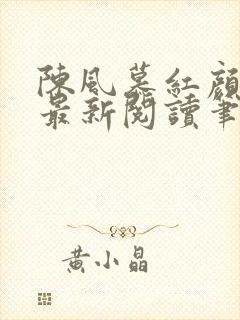 陳風慕紅顏
最新閱讀筆
黃小晶